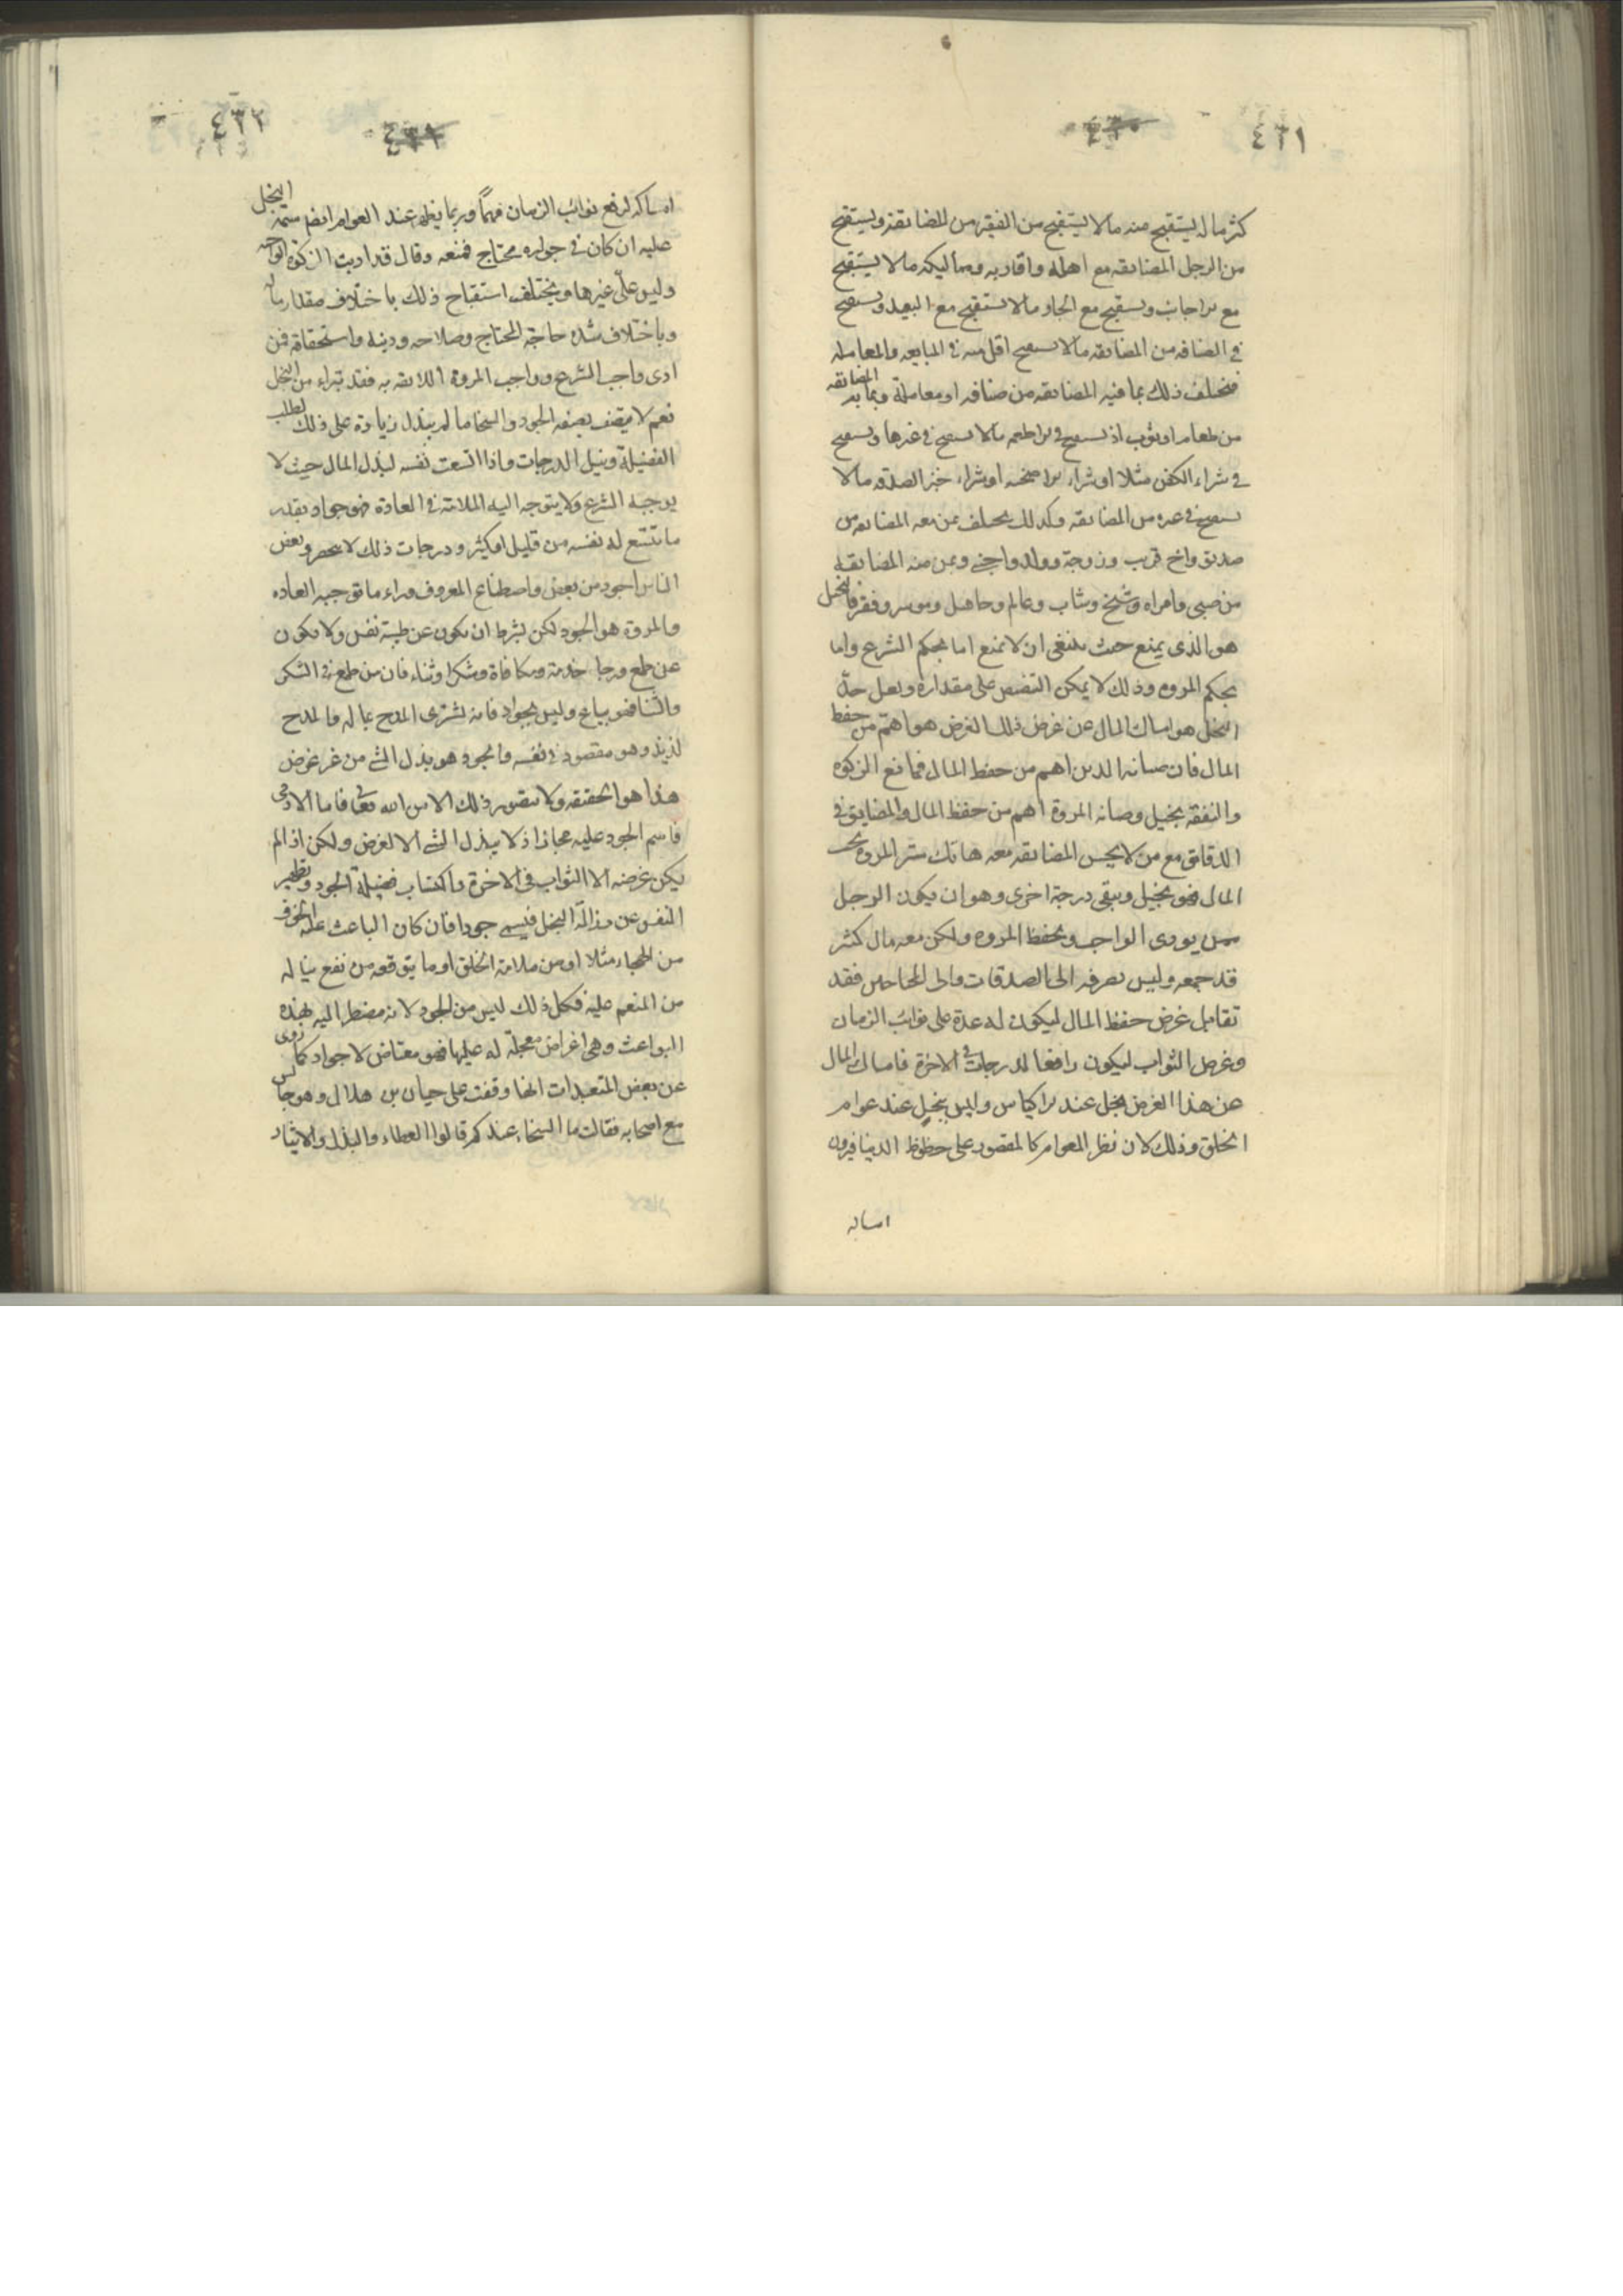 ٤٣١
٤٣٠
كثر ماله يستقبح منه ما لا يستقبح من الفقير من المضايقة ويستقبح
من الرجل المضايقه مع اهله واقاربه ومماليكه ما لا يستقبح
مع الاجانب ويستقبح مع الجار ما لا يستقبح مع البعيد ويستقبح
في الضيافه من المضايقه ما لا يستقبح اقل منه في المبايعه والمعامله
فيختلف ذلك بما فيه المضايقه من ضيافه او معاملة وبما به المضايقه
من طعام او ثوب اذ يستقبح في الاطعمه ما لا يستقبح في غيرها ويستقبح
في شراء الكفن مثلا او شراء الاضحيه او شراء خبز الصدقه ما لا
يستقبح في غيره من المضايقه وكذلك يختلف بمن معه المضايقه من
صديق واخ قريب وزوجة وولد واجنبي وبمن منه المضايقه
من صبي وامراه وشيخ وشاب وعالم وجاهل وموسر وفقير فالبخيل
هو الذي يمنع حيث ينبغي ان لا يمنع اما بحكم الشرع واما
بحكم المروه وذلك لا يمكن التنصيص على مقداره ولعل حدّ
البخل هو امساك المال عن غرض ذلك الغرض هو اهمّ من حفظ
المال فان صيانه الدين اهم من حفظ المال فمانع الزكوه
والنفقه بخيل وصيانه المروة اهم من حفظ المال والمضايق في
الدقايق مع من لا يحسن المضايقه معه هاتك ستر المروه لحب
المال فهو بخيل وتبقى درجة اخرى وهو ان يكون الرجل
ممن يودى الواجب ويحفظ المروه ولكن معه مال كثير
قد جمعه وليس يصرفه الى الصدقات والى المحتاجين فقد
تقابل غرض حفظ المال ليكون له عدة على نوائب الزمان
وغرض الثواب ليكون رافعا لدرجاته في الاخرة فامساك المال
عن هذا الغرض بخل عند الاكياس وليس ببخيل عند عوام
الخلق وذلك لان نظر العوام كالمقصور على حظوظ الدنيا فيرون
امساكه
٤٣٢
٤٣١
امساكه لدفع نوائب الزمان مهمّاً وربما يظهر عند العوام ايضا سمة البخل
عليه ان كان في جواره محتاج فمنعه وقال قد اديت الزكوة الواجبه
وليس علىّ غيرها ويختلف استقباح ذلك باختلاف مقدار ماله
وباختلاف شده حاجة المحتاج وصلاحه ودينه واستحقاقه فمن
ادى واجب الشرع وواجب المروة اللائقه به فقد تبراء من البخل
نعم لا يتصف بصفه الجود والسخا ما لم يبذل زيادة على ذلك لطلب
الفضيلة ونيل الدرجات واذا اتسعت نفسه لبذل المال حيث لا
يوجبه الشرع ولا يتوجه اليه الملامة في العادة فهو جواد بقدر
ما تتسع له نفسه من قليل او كثير ودرجات ذلك لا تحصر وبعض
الناس اجود من بعض واصطناع المعروف وراء ما توجبه العاده
والمروة هو الجود لكن بشرط ان يكون عن طيبة نفس ولا يكون
عن طمع ورجا خدمة ومكافاة وشكر او ثناء فان من طمع في الشكر
والثنا فهو بياع وليس بجواد فانه يشترى المدح بماله والمدح
لذيذ وهو مقصود في نفسه والجود هو بذل الشي من غير غرض
هذا هو الحقيقه ولا يتصور ذلك الا من الله تعالى فاما الادمى
فاسم الجود عليه مجاز اذ لا يبذل الشي الا لغرض ولكن اذا لم
يكن غرضه الا الثواب في الاخرة واكتساب فضيلة الجود وتطهير
النفس عن رذالة البخل فيسمى جودا فان كان الباعث عليه الخوف
من الهجاء مثلا او من ملامة الخلق او ما يتوقعه من نفع يناله
من المنعم عليه فكل ذلك ليس من الجود لانه مضطر اليه بهذه
البواعث وهي اغراض معجلة له عليها فهو معتاض لا جواد كما روى
عن بعض المتعبدات انها وقفت على حيان بن هلال وهو جالس
مع اصحابه فقالت ما السخاء عندكم قالوا العطاء والبذل والايثار